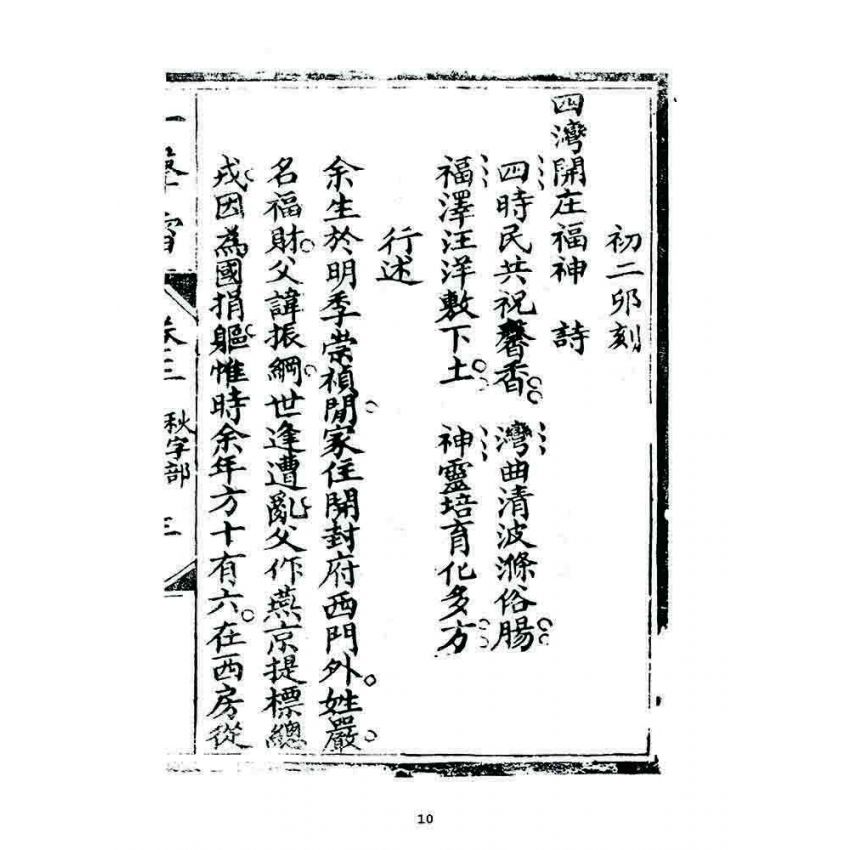 初二卯刻
四灣開庄福神　詩
四時民共祝馨香。灣曲清波滌俗腸
福澤汪洋敷下土。神靈培育化多方
行述
余生於明季崇禎間。家住開封府西門外。姓嚴。
名福財。父諱振綱。世逢遭亂。父作燕京提標總
戎。因為國捐軀。惟時余年方十有六。在西房從
卷三　秋字部　三
10